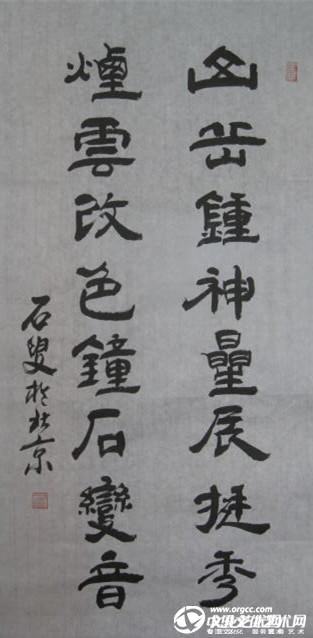 山岳鍾神星辰挺秀
煙雲改色鐘石變音
石叟於北京
www.orgcc.com